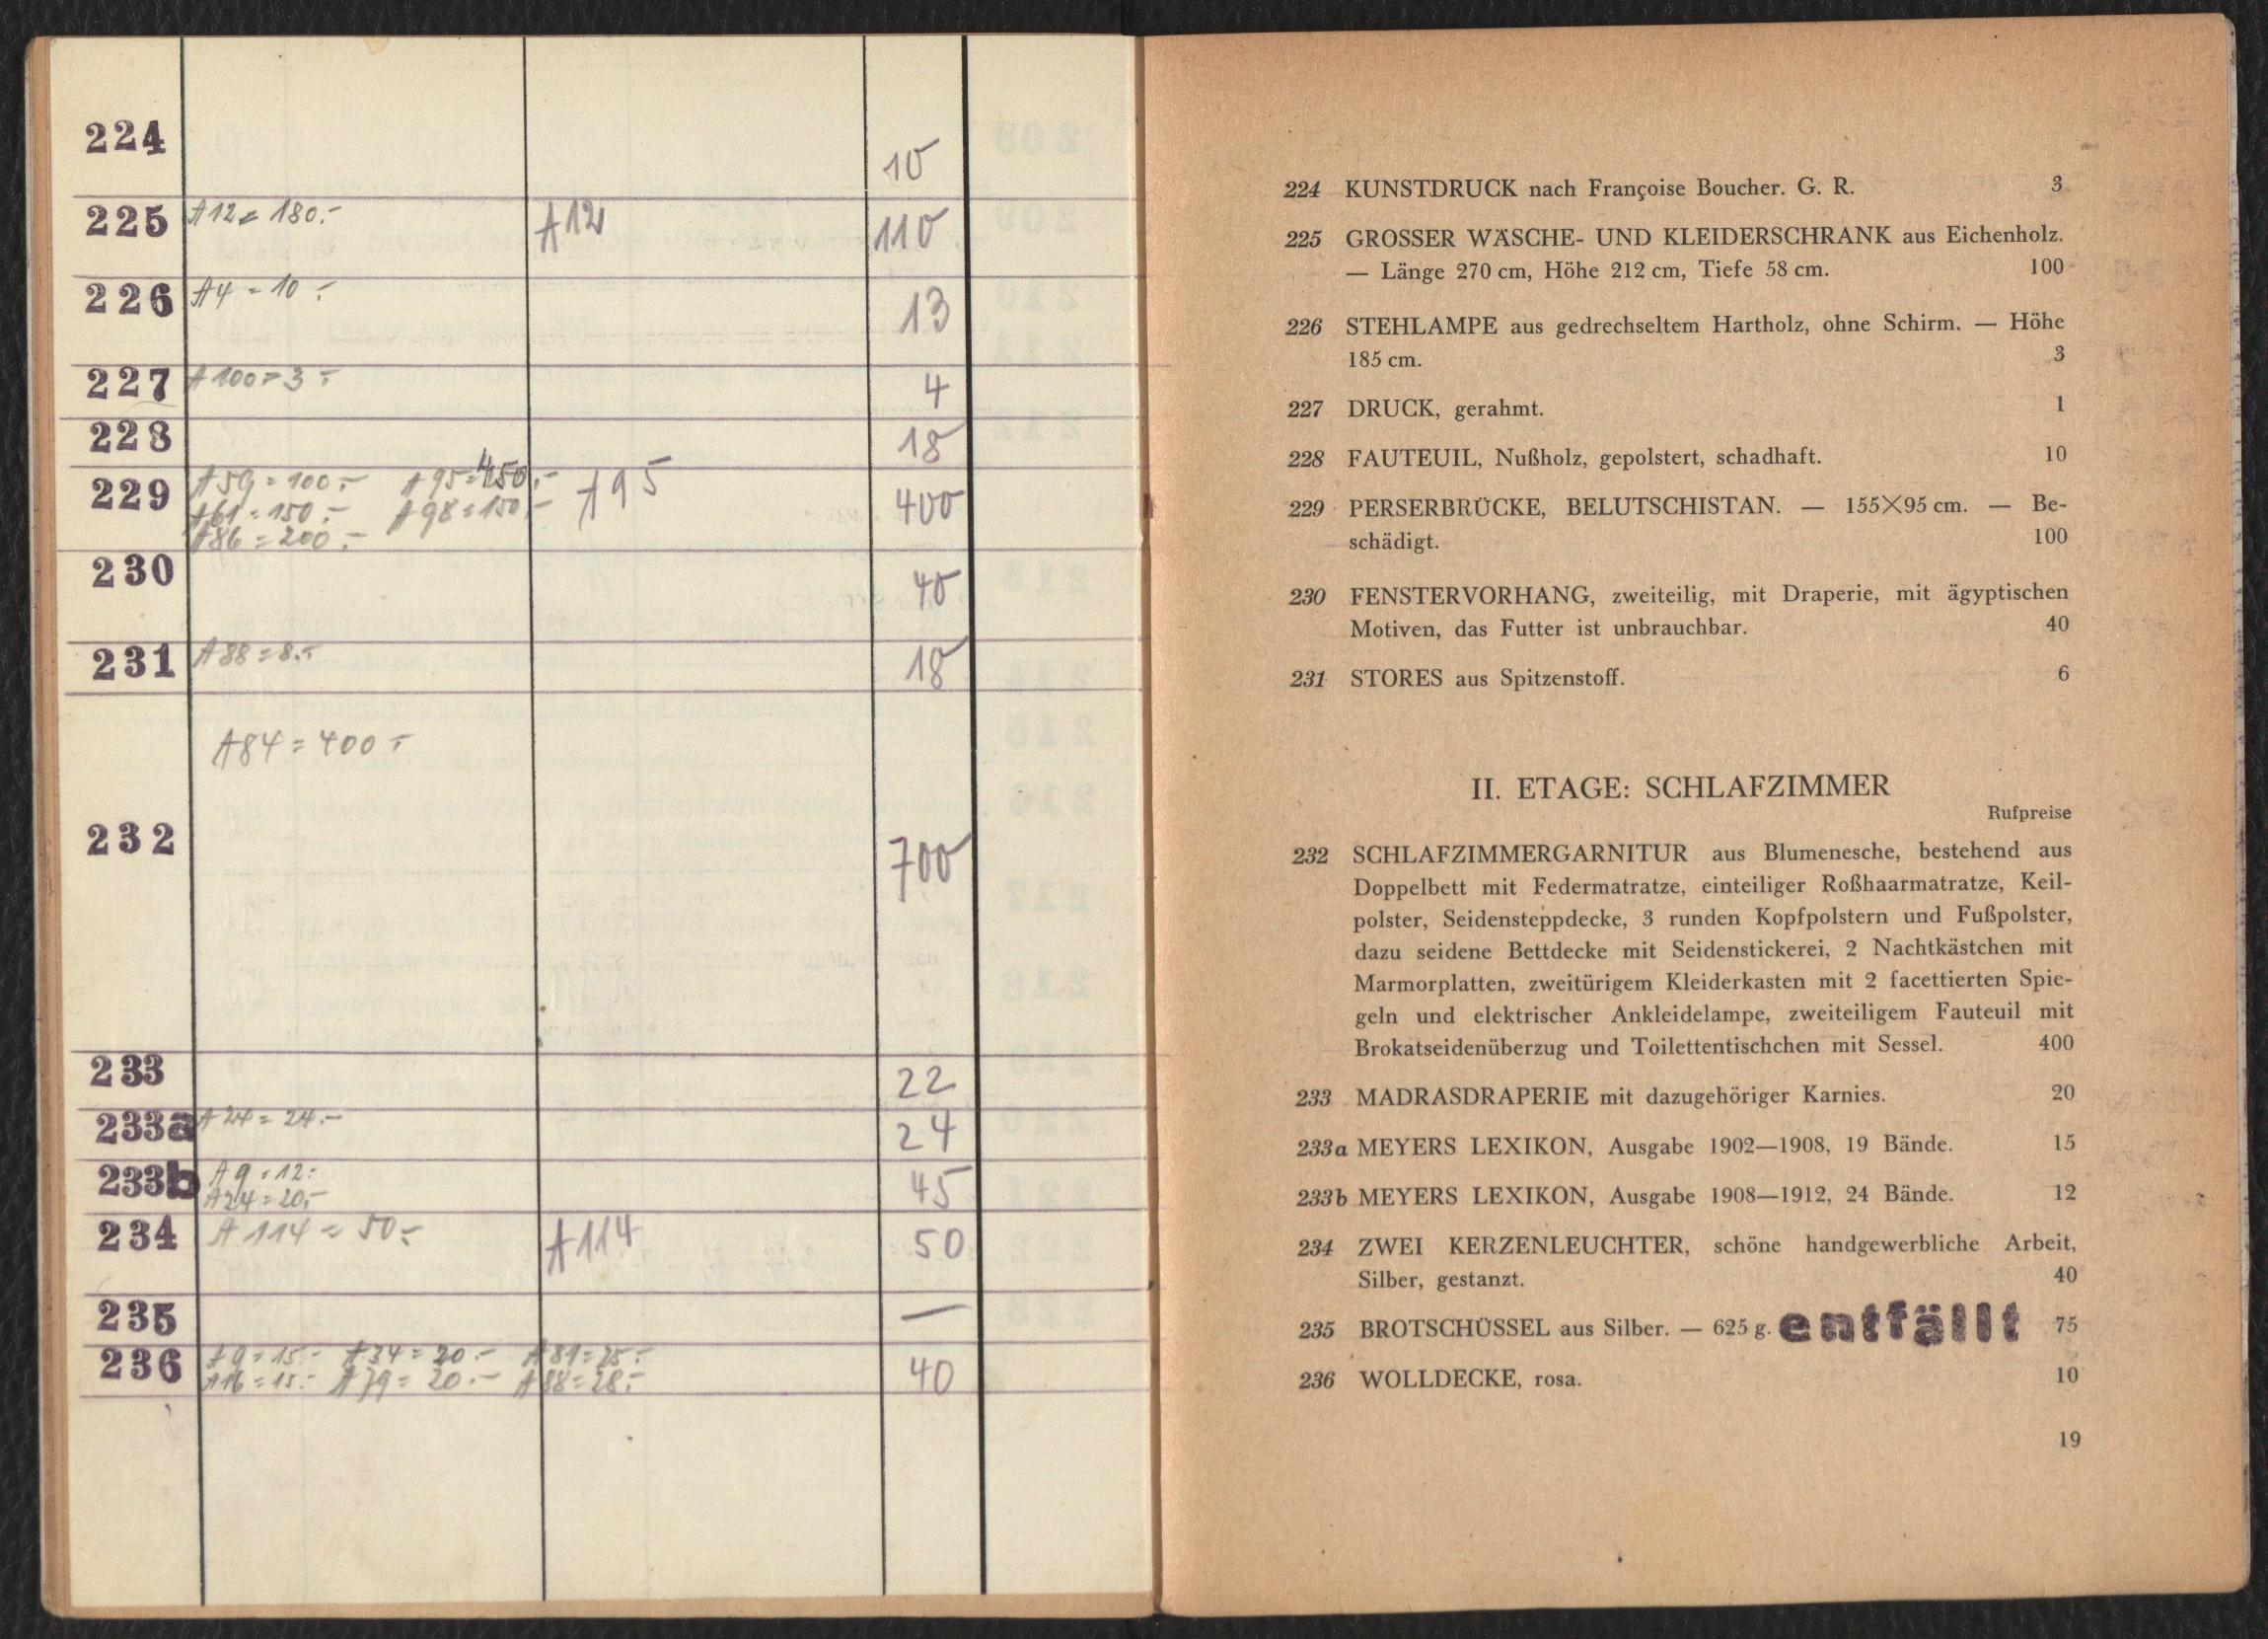 224 10
225 A12 = 180.- A12 110
226 A4 = 10.- 13
227 A100 = 3.- 4
228 18
229 A59 = 100.- A95 = 450.- A95 400
A61 = 150.- A98 = 150.-
A86 = 200.-
230 40
231 A88 = 8.- 18
A84 = 400.-
232 700
233 22
233a A24 = 24.- 24
233b A9 = 12.- 45
A24 = 20.-
234 A114 = 50.- A114 50
235 —
236 A9 = 15.- A34 = 20.- A81 = 25.- 40
A16 = 15.- A79 = 20.- A88 = 28.-
224 KUNSTDRUCK nach Françoise Boucher. G. R. 3
225 GROSSER WÄSCHE- UND KLEIDERSCHRANK aus Eichenholz.
— Länge 270 cm, Höhe 212 cm, Tiefe 58 cm. 100
226 STEHLAMPE aus gedrechseltem Hartholz, ohne Schirm. — Höhe
185 cm. 3
227 DRUCK, gerahmt. 1
228 FAUTEUIL, Nußholz, gepolstert, schadhaft. 10
229 PERSERBRÜCKE, BELUTSCHISTAN. — 155×95 cm. — Be-
schädigt. 100
230 FENSTERVORHANG, zweiteilig, mit Draperie, mit ägyptischen
Motiven, das Futter ist unbrauchbar. 40
231 STORES aus Spitzenstoff. 6
II. ETAGE: SCHLAFZIMMER
Rufpreise
232 SCHLAFZIMMERGARNITUR aus Blumenesche, bestehend aus
Doppelbett mit Federmatratze, einteiliger Roßhaarmatratze, Keil-
polster, Seidensteppdecke, 3 runden Kopfpolstern und Fußpolster,
dazu seidene Bettdecke mit Seidenstickerei, 2 Nachtkästchen mit
Marmorplatten, zweitürigem Kleiderkasten mit 2 facettierten Spie-
geln und elektrischer Ankleidelampe, zweiteiligem Fauteuil mit
Brokatseidenüberzug und Toilettentischchen mit Sessel. 400
233 MADRASDRAPERIE mit dazugehöriger Karnies. 20
233a MEYERS LEXIKON, Ausgabe 1902—1908, 19 Bände. 15
233b MEYERS LEXIKON, Ausgabe 1908—1912, 24 Bände. 12
234 ZWEI KERZENLEUCHTER, schöne handgewerbliche Arbeit,
Silber, gestanzt. 40
235 BROTSCHÜSSEL aus Silber. — 625 g. entfällt 75
236 WOLLDECKE, rosa. 10
19